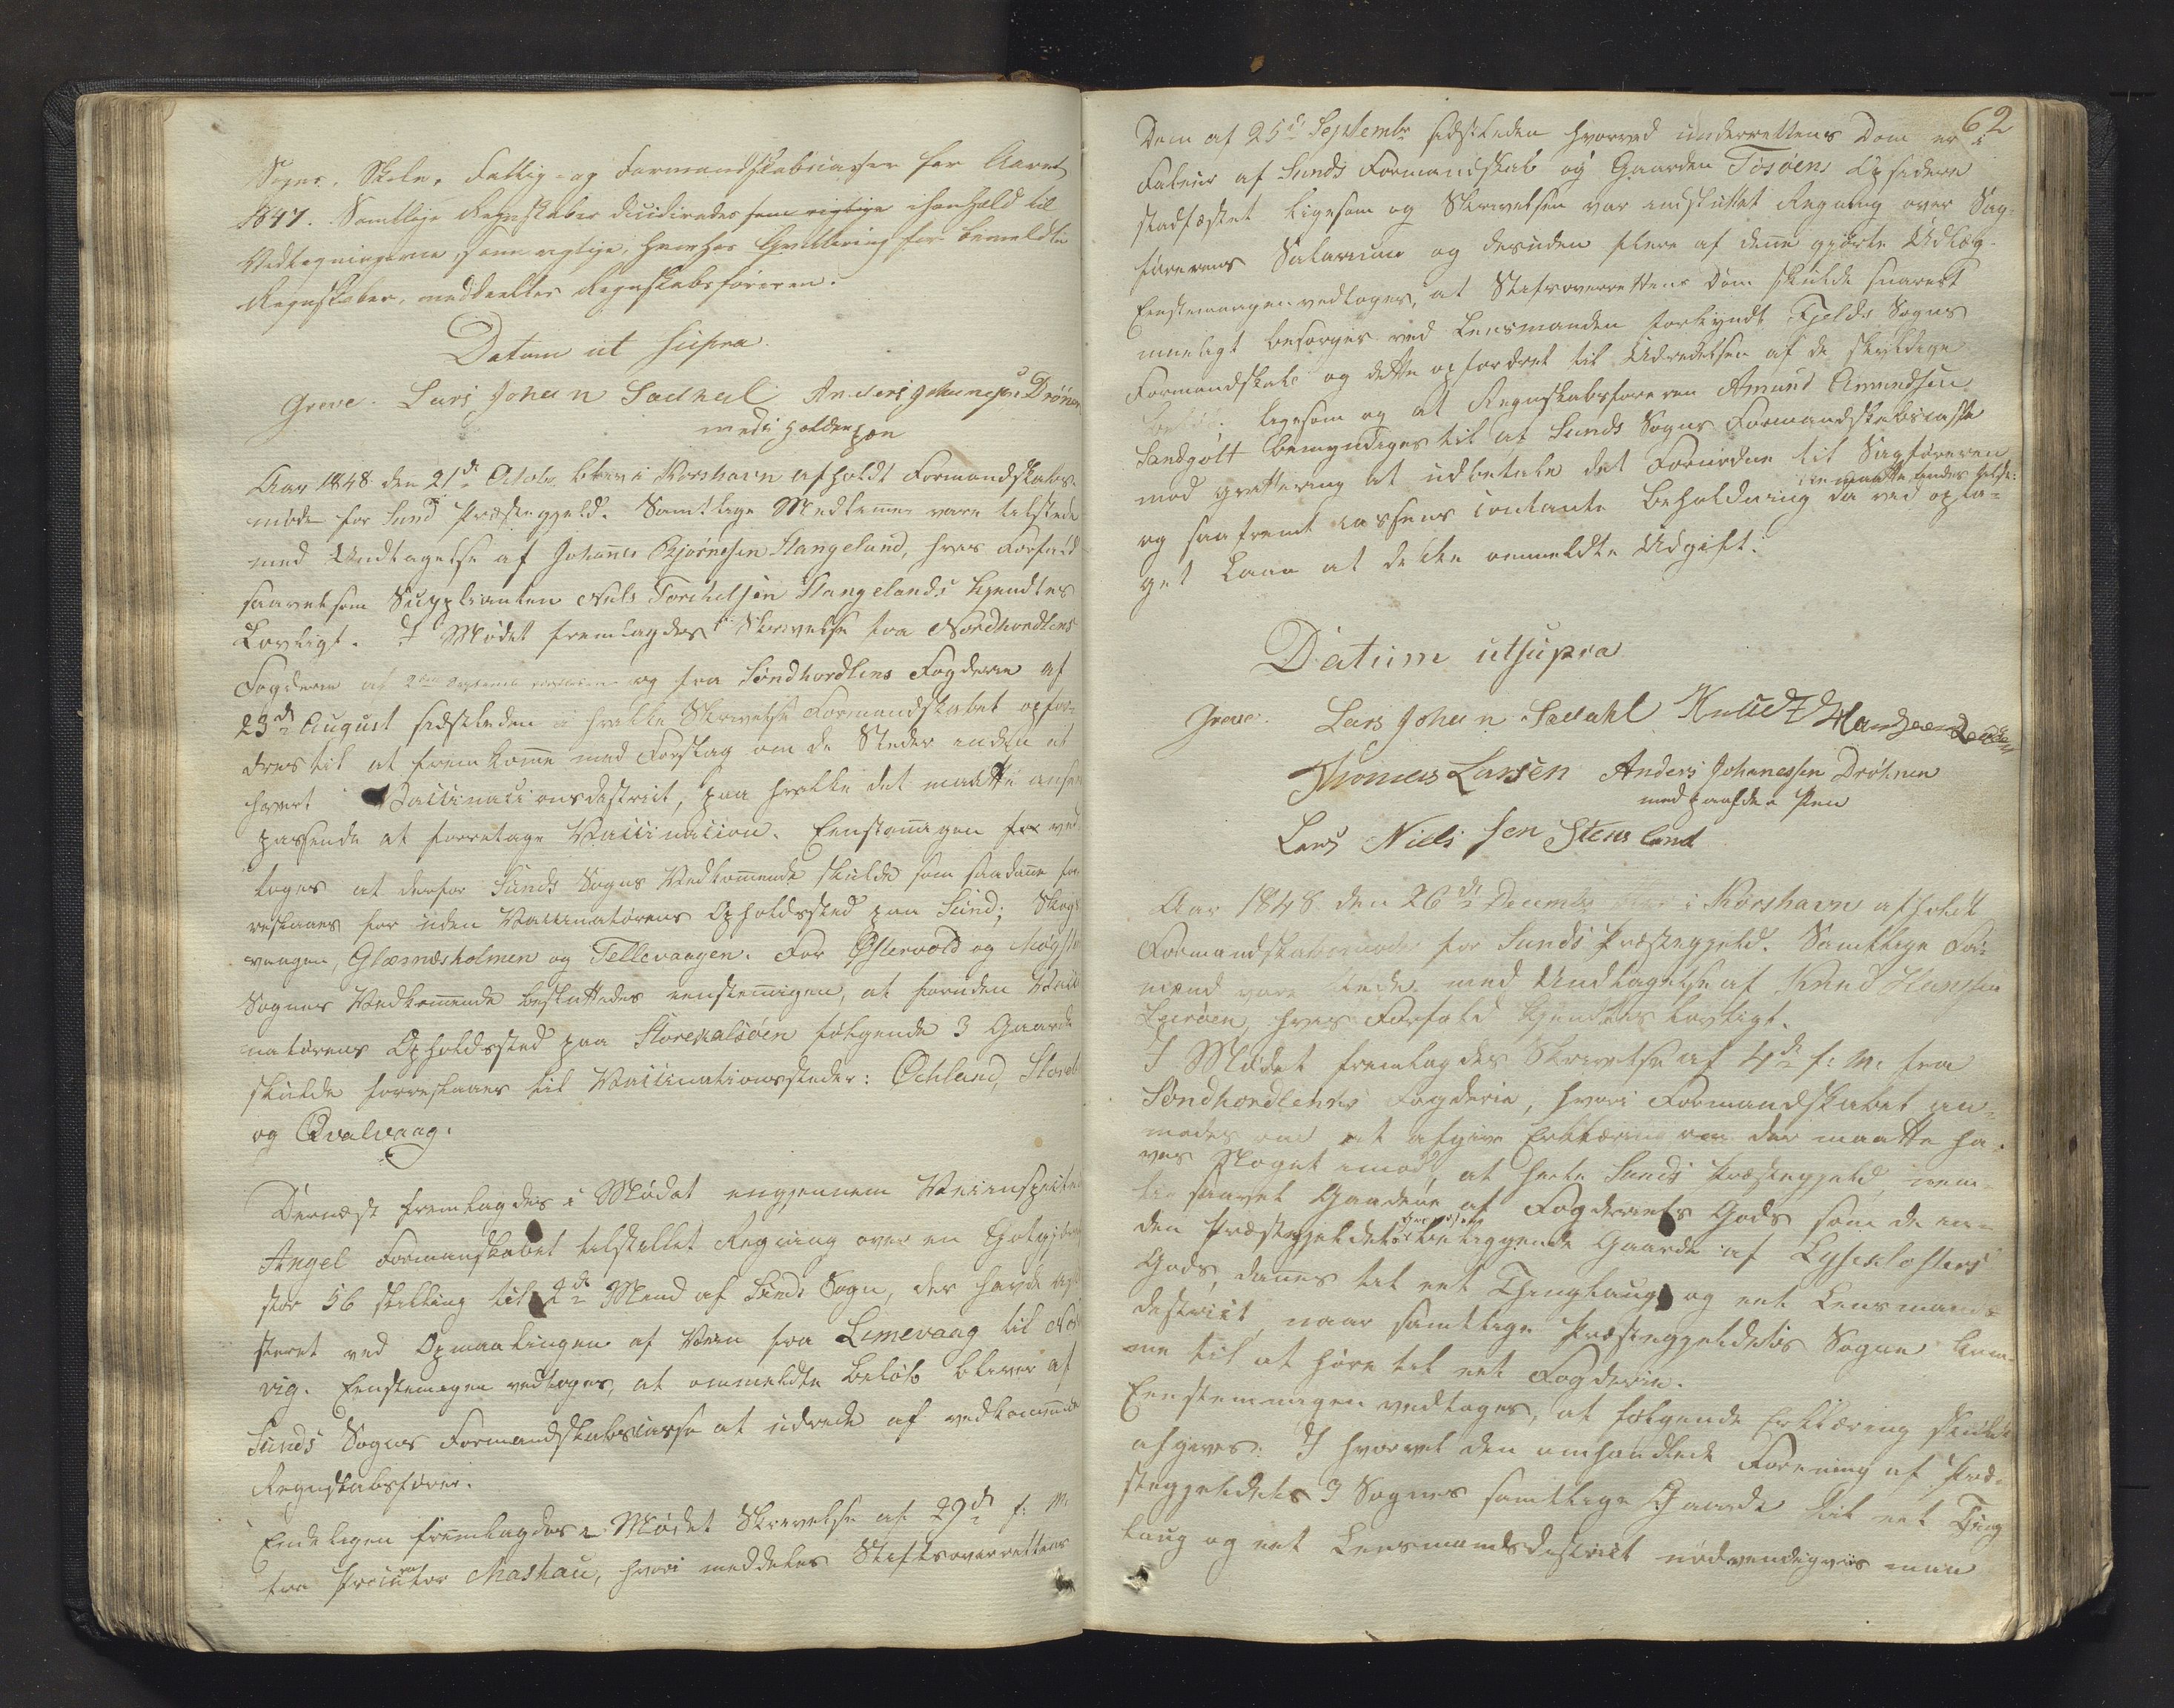 Sogne-, Skole-, Fattig- og Formandskabscasser for Aaret
1847. Samtlige Regnskaber decideredes som rigtige i henhold til
Vedtegningerne, som rigtige, hvorhos Qvittering for bemeldte
Regnskaber, meddeeltes Regnskabsføreren.
Datum ut supra.
Greve. Lars Johan Saedal Anders Johanesen Drönen
med i holden pæn
Aar 1848 den 21de Octobr blev i Korshavn afholdt Formandskabs-
møde for Sund Præstegjeld. Samtlige Medlemmer vare tilstede
med Undtagelse af Johannes Bjørnesen Stangeland, hvis Forfald
saavelsom Supplianten Niels Torchelsen Stangelands kjendtes
Lovligt. I Mødet fremlagdes Skrivelse fra Nordhordlens
Fogderie af og fra Søndhordlens Fogderie af
23de August sidstleden i hvilke Skrivelse Formandskabet opfor-
dres til at fremkomme med Forslag om de Steder inden et
hvert Vaccinationsdistrict, paa hvilke det maatte ansees
passende at foretage Vaccination. Eenstemmigen for ved-
toges at derfor Sunds Sogns Vedkommende skulde som saadanne fo-
reslaaes for uden Vaccinatørens Opholdssted paa Sund; Skogs
vaagen, Glæsnæsholmen og Tellevaagen. For Østervold og Møgster
Sognes Vedkommende besluttedes eenstemmigen, at foruden Vacci
natørens Opholdssted paa Storekalsøen følgende 3 Gaarde
skulde foreslaaes til Vaccinationssteder: Ochland, Storeb
og Qvalvaag.
Dernæst fremlagdes i Mødet engjennem Veiinspecteur
Angel Formanskabet tilstillet Regning over en Godtgjørelse
stor 56 skilling til 2de Mænd af Sunds Sogn, der havde assi
steret ved Opmaalingen af Veien fra Limevaag til No
vig. Eenstemigen vedtoges, at ommeldte Beløb bliver af
Sunds Sogns Formandskabscasse at udrede af vedkommende
Regnskabsfører.
Endeligen fremlagdes i Mødet Skrivelse af 29de f. M.
fra Procurator Maskau, hvori meddeles Stiftsoverrettens
62
Dom af 25de Septembr sidstleden hvorved underrettens Dom er i
Faveur af Sunds Formandskab og Gaarden Tösöens Opsiddere
stadfæstet ligesom og Skrivelsen var indsluttet Regning over Sag-
førerens Salarium og desuden flere af denne gjorte Udlæg.
Eenstemmigen vedtoges, at Stiftsoverrettens Dom skulde snarest
mueligt besørges ved Lensmanden forkyndt Fjelds Sogns
Formandskab og dette opfordret til Udredelsen af de skyldige
ligesom og at Regnskabsføreren Amund Amundsen
Landgolt bemyndiges til af Sunds Sogns Formandskabscasse
mod qvittering at udbetale det Fornødne til Sagføreren
og saafremt Cassens contante Beholdning da ved opta-
get Laan at dække ommeldte Udgift.
Datum utsupra
Greve. Lars Johan Saedahl Knud Handsen
Thomas Larsen Anders Johanessen Dröhnen
med paaholden Pen
Lars Nielssen Stensland
Aar 1848 den 26de Decembr blev i Korshavn afholdt
Formandskabsmøde for Sunds Præstegjeld. Samtlige For-
mænd vare tilstede med Undtagelse af Knud Hanssen
Leerøen, hvis Forfald kjendtes lovligt.
I Mødet fremlagdes Skrivelse af 4de f. M. fra
Søndhordlens Fogderie, hvori Formandskabet an-
modes om at afgive Erklæring om der maatte ha-
ves Noget imod, at hele Sunds Præstegjeld, nem-
lig saavel Gaardene af Fogderiets Gods som de in-
den Præstegjeldets beliggende Gaarde af Lyseklosters
Gods, dannes til eet Thinglaug og eet Lensmands-
district naar samtlige Præstegjeldets Sogne kom-
me til at høre til eet Fogderie.
Eenstemmigen vedtoges, at følgende Erklæring skulde
afgives: I hvorvel den omhandlede Forening af Præ-
stegjeldets 3 Sognes samtlige Gaarde til eet Ting
laug og eet Lensmandsdistrict nødvendigviis maa